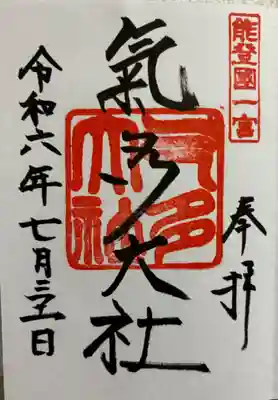 能登國一宮
奉拝
氣多大社
令和六年七月三十一日